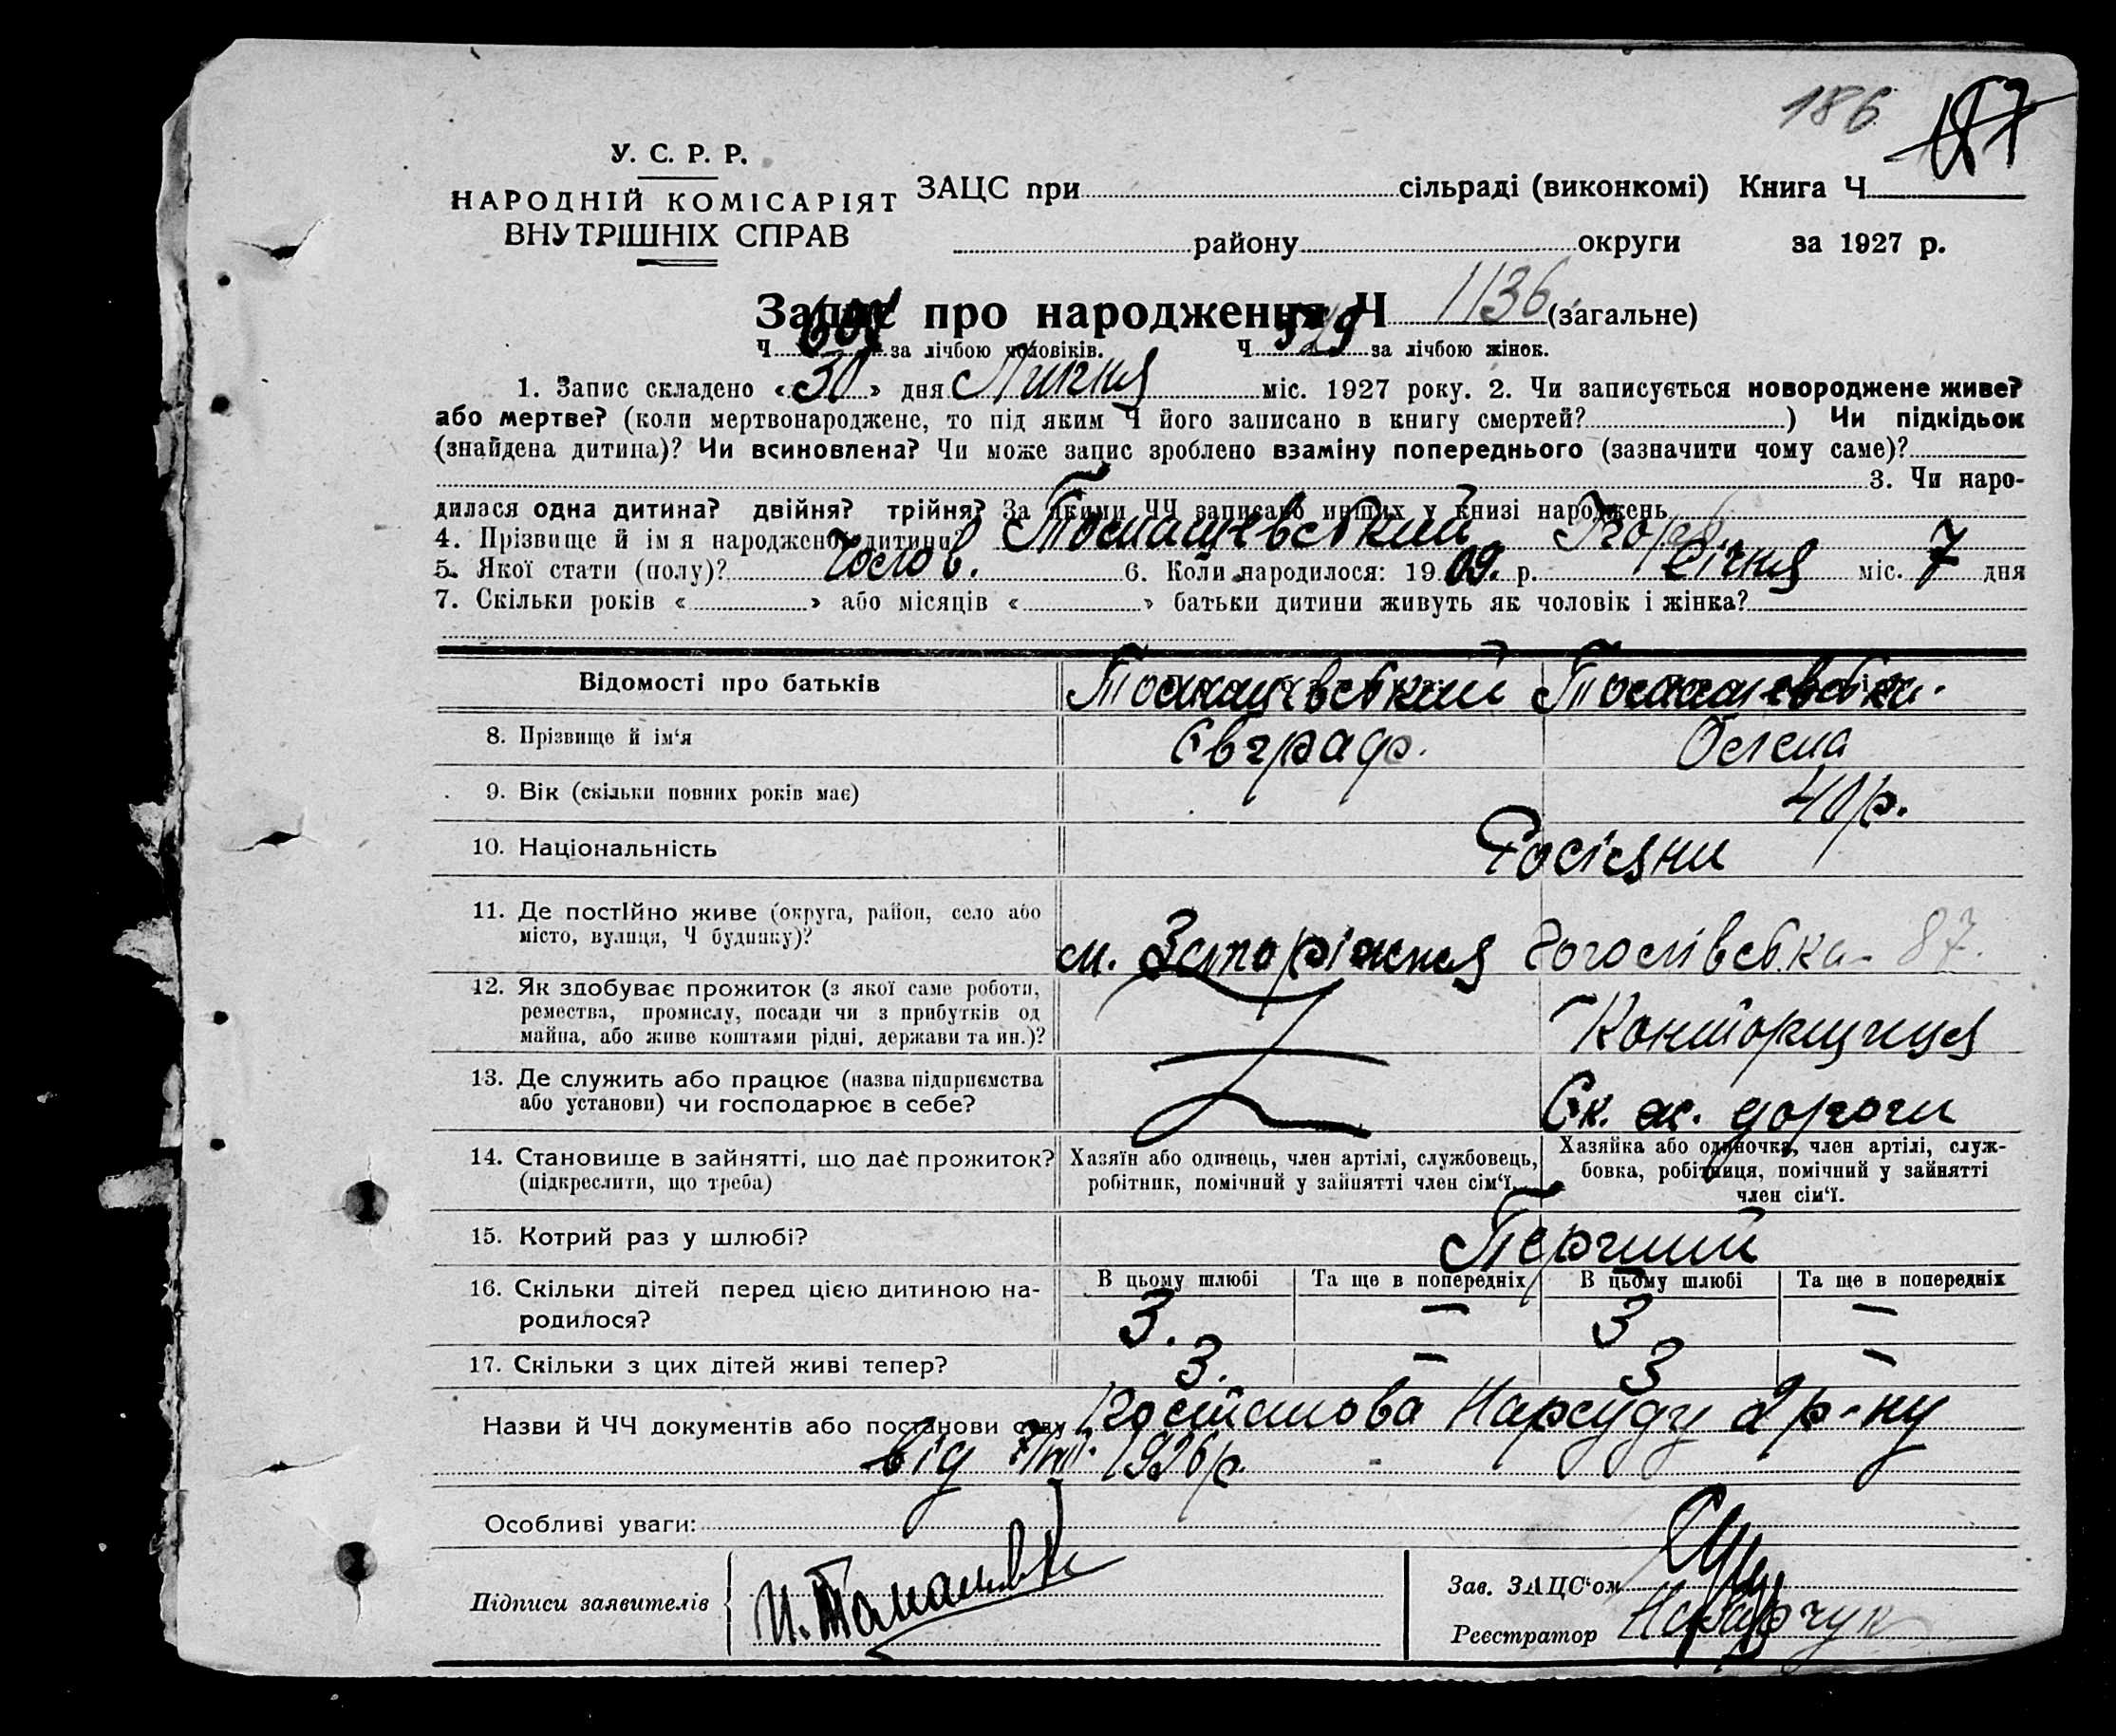 186 187
У. С. Р. Р.
НАРОДНІЙ КОМІСАРІЯТ
ВНУТРІШНІХ СПРАВ
ЗАЦС при сільраді (виконкомі) Книга Ч
району округи за 1927 р.
Запис про народження Ч 1136 (загальне)
Ч 607 за лічбою чоловіків. Ч 529 за лічбою жінок.
1. Запис складено « 30 » дня Липня міс. 1927 року. 2. Чи записується новороджене живе?
або мертве? (коли мертвонароджене, то під яким Ч його записано в книгу смертей? ) Чи підкідьок
(знайдена дитина)? Чи всиновлена? Чи може запис зроблено взаміну попереднього (зазначити чому саме)?
3. Чи наро-
дилася одна дитина? двійня? трійня? За якими ЧЧ записано инших у книзі народжень
4. Прізвище й ім я народженої дитини Томашевський Ігорь
5. Якої стати (полу)? Чолов. 6. Коли народилося: 19 09. р. Січня міс. 7 дня
7. Скільки років « » або місяців « » батьки дитини живуть як чоловік і жінка?
Відомості про батьків Томашевський Томашевська.
8. Прізвище й ім‘я Євграф. Олена
9. Вік (скільки повних років має) 40 р.
10. Національність Росіяни
11. Де постійно живе (округа, район, село або
місто, вулиця, Ч будинку)?
м. Запоріжжя Гоголівська 87.
12. Як здобуває прожиток (з якої саме роботи,
ремества, промислу, посади чи з прибутків од
майна, або живе коштами рідні, держави та ин.)?
Конторщиця
13. Де служить або працює (назва підприємства
або установи) чи господарює в себе?
Єк. ж. дороги
14. Становище в зайнятті, що дає прожиток?
(підкреслити, що треба)
Хазяїн або одинець, член артілі, службовець,
робітник, помічний у зайнятті член сім‘ї.
Хазяйка або одиночка, член артілі, служ-
бовка, робітниця, помічний у зайнятті
член сім‘ї.
15. Котрий раз у шлюбі? Перший
16. Скільки дітей перед цією дитиною на-
родилося?
В цьому шлюбі Та ще в попередніх В цьому шлюбі Та ще в попередніх
3. — 3 —
17. Скільки з цих дітей живі тепер? 3. — 3 —
Назви й ЧЧ документів або постанови суду Постанова Нарсуду 2 р-ну
від 1926 р.
Особливі уваги:
Підписи заявителів
Зав. ЗАЦС‘ом
Реєстратор